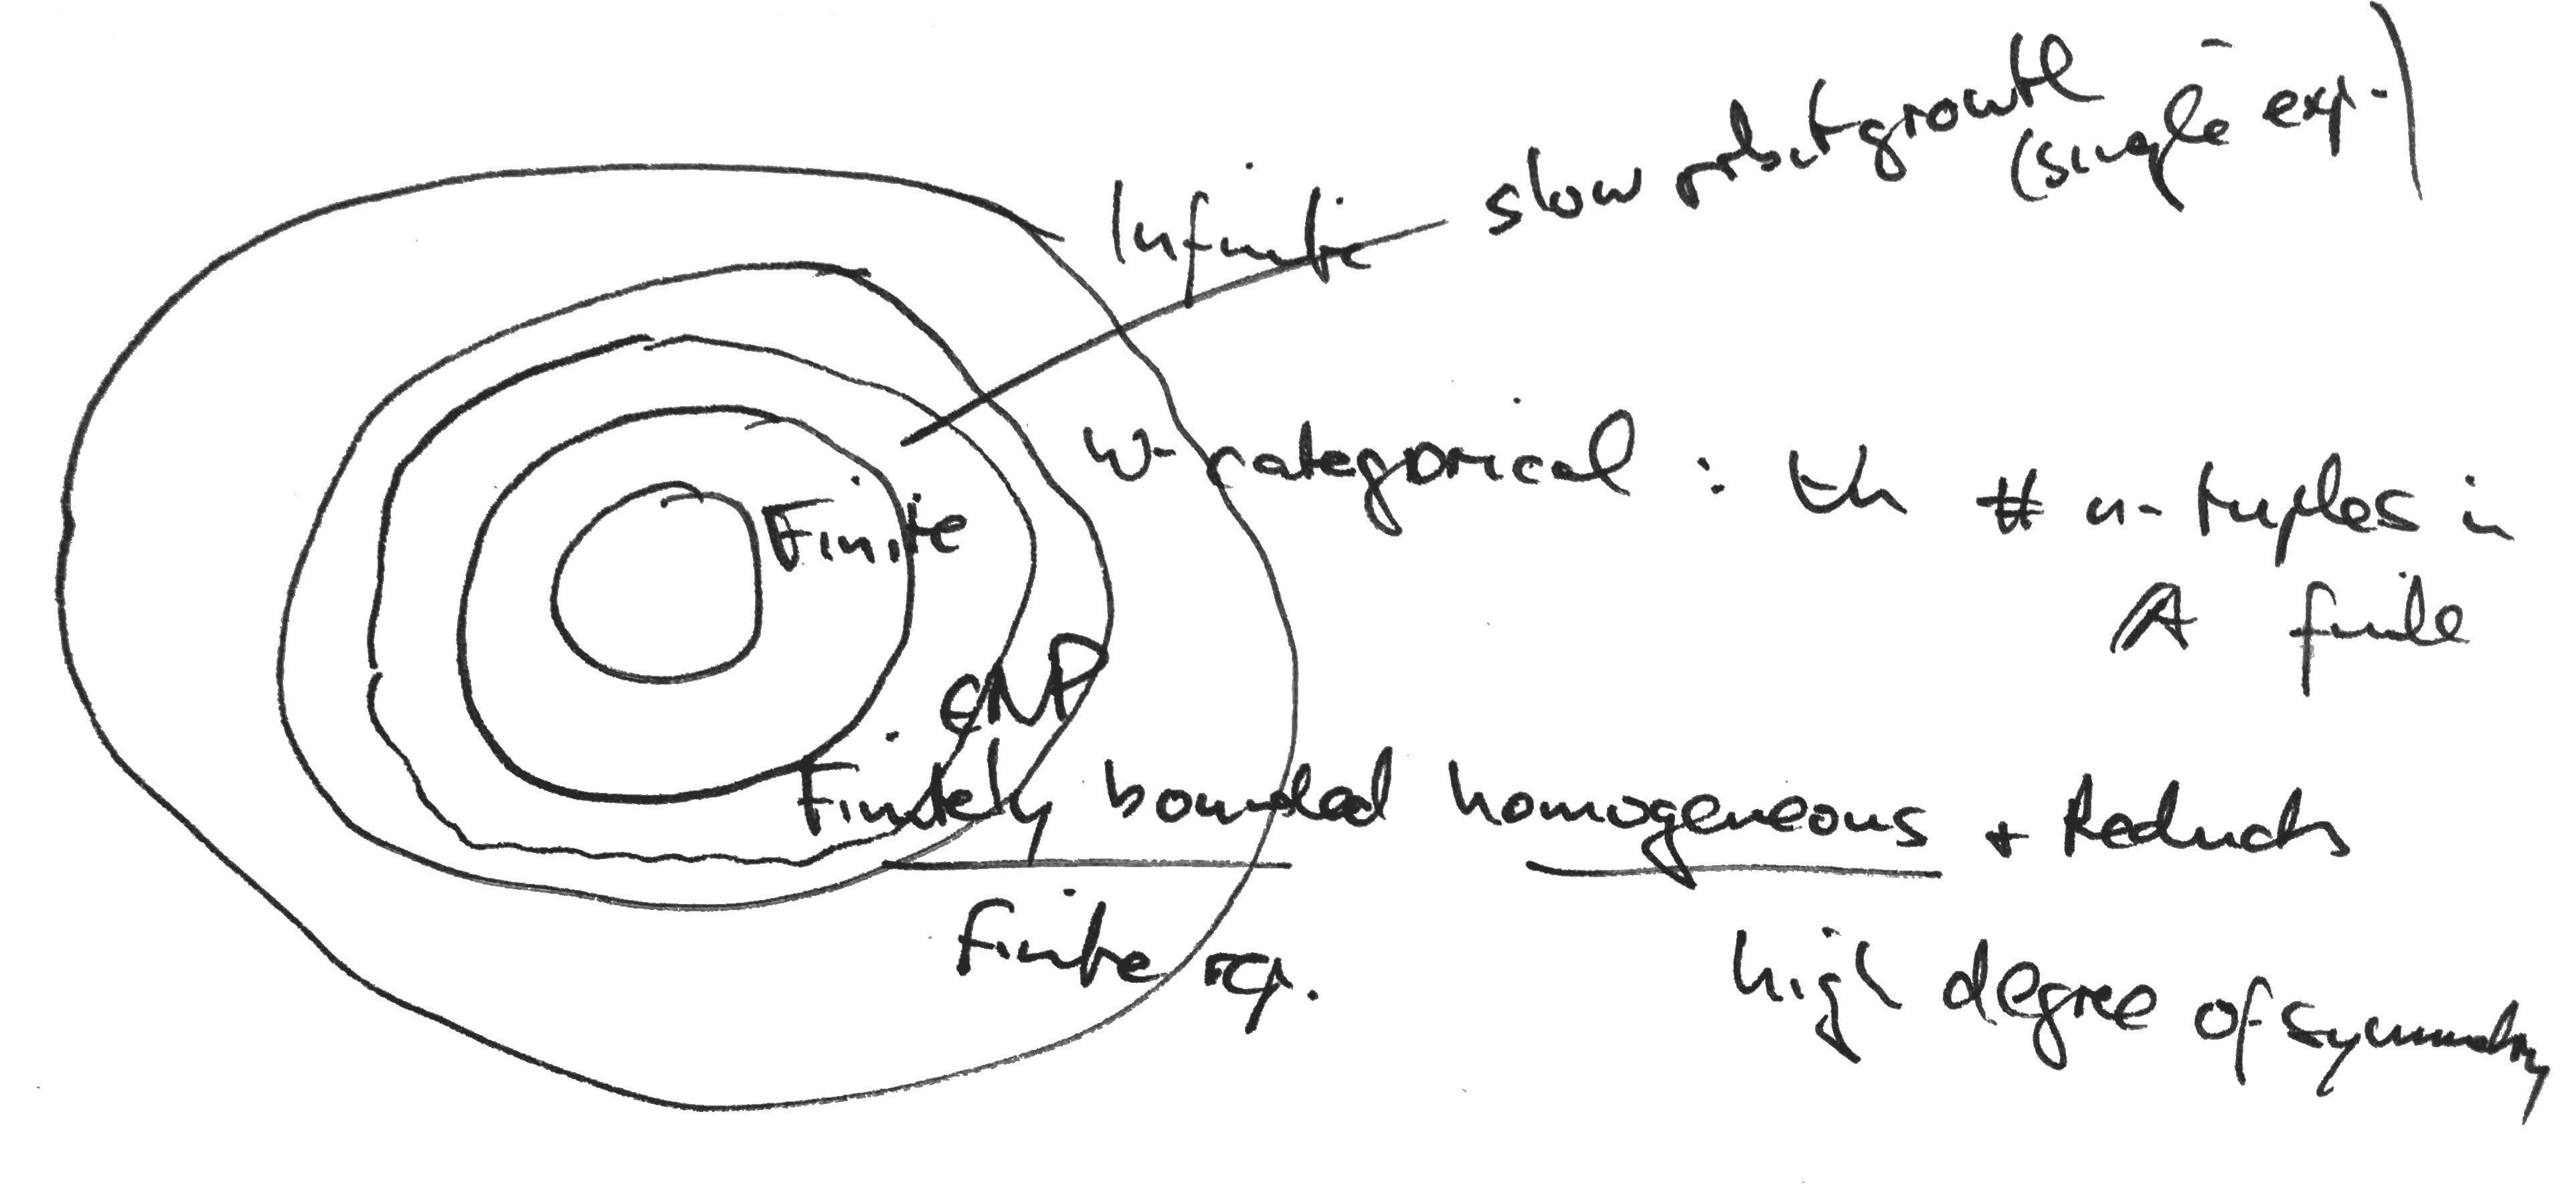 slow orbit growth
(single exp.)
Infinite
ω-categorical : ∀n # n-tuples in
A finite
Finite
CNP
Finitely bounded homogeneous + Reducts
finite rep.
high degree of symmetry